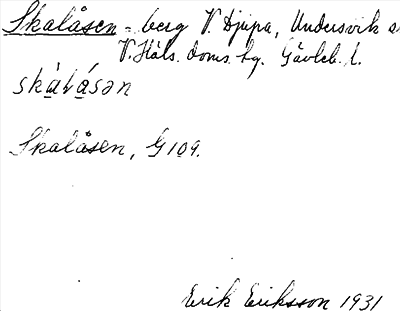 Skalåsen = berg V. Djupa, Undersvik s
V. Häls. doms. hg. Gävleb. l.
skàlásən
Skalåsen, G109.
Erik Eriksson 1931